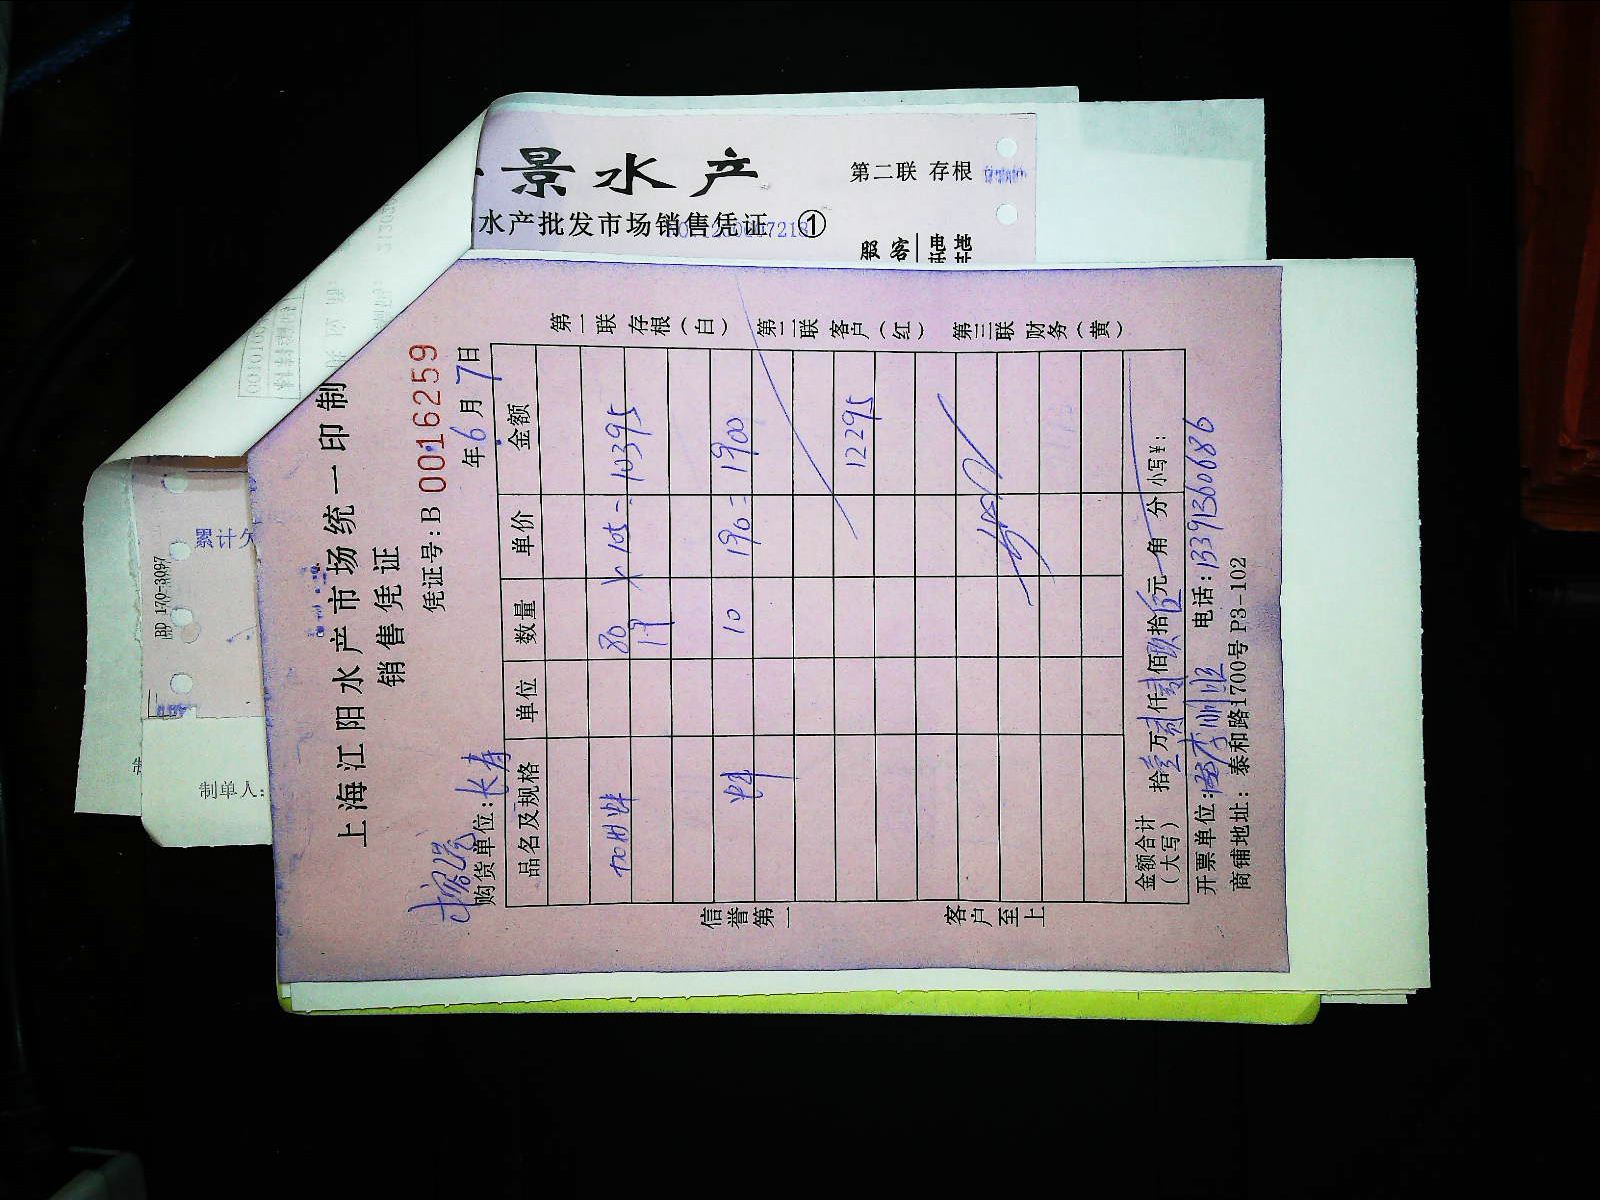 景水产
第二联 存根
水产批发市场销售凭证 ①
服客
电 地
累计欠
BD 170-3097
制单人:
上海江阳水产市场统一印制
销售凭证
凭证号:B 0016259
年6月7日
购货单位:长寿
品名及规格 单位 数量 单价 金额
加州鲈 80
19 × 105 = 10395
鲈 10 190 = 1900
12295
金额合计(大写) 拾壹万贰仟贰佰玖拾伍元 角 分 小写¥:
开票单位: 电话:13391360686
商铺地址: 泰和路1700号P3-102
第一联 存根(白) 第二联 客户(红) 第三联 财务(黄)
信誉第一
客户至上